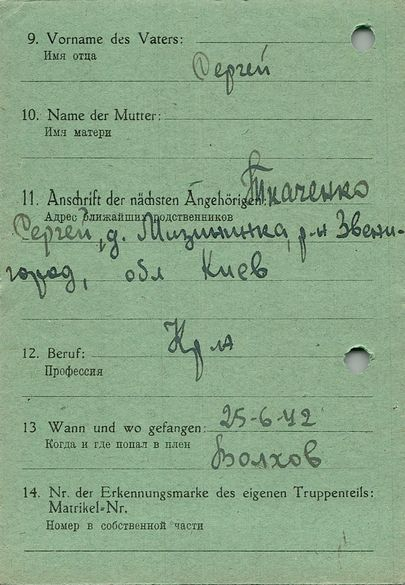 9. Vorname des Vaters:
Имя отца
Сергей
10. Name der Mutter:
Имя матери
11. Anschrift der nächsten Angehörigen: Ткаченко
Адрес ближайших родственников
Сергей, д. р-н Звени-
город, обл Киев
12. Beruf:
Профессия
13 Wann und wo gefangen: 25-6-42
Когда и где попал в плен
Волхов
14. Nr. der Erkennungsmarke des eigenen Truppenteils:
Matrikel-Nr.
Номер в собственной части